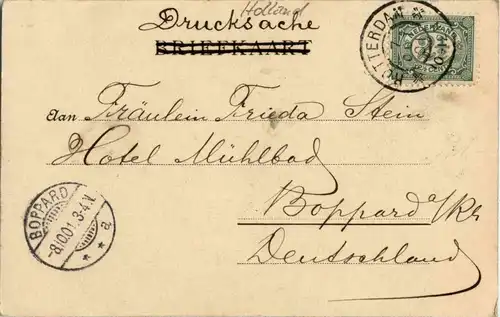 Holland
Drucksache
BRIEFKAART
ROTTERDAM
Aan Fräulein Frieda Stein
Hotel Mühlbad
Boppard a/Rh
Deutschland
BOPPARD
-8.10.01.3-4.N.
* * a